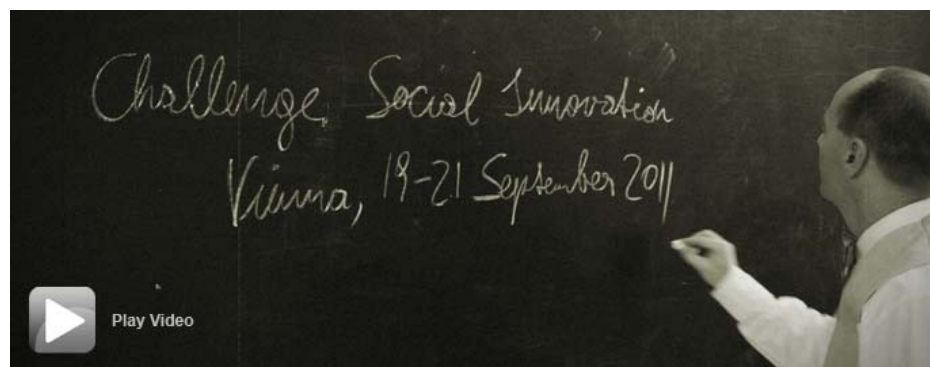 Challenge Social Innovation
Vienna, 19-21 September 2011
Play Video